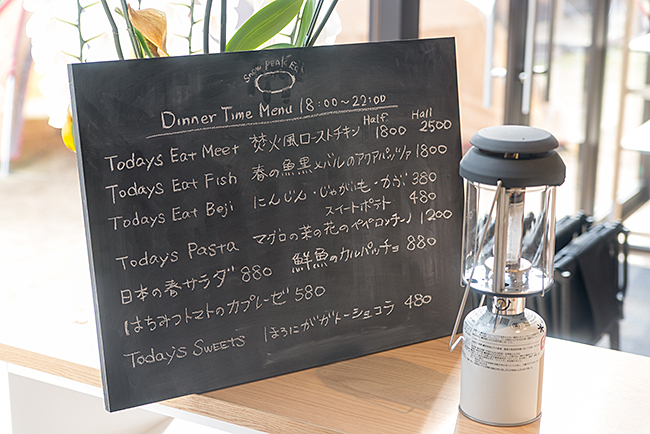 Snow Peak Eat
Dinner Time Menu 18:00~22:00
Half Hall
Todays Eat Meet 焚火風ローストチキン 1800 2500
Todays Eat Fish 春の魚黒メバルのアクアパッツァ 1800
Todays Eat Beji にんじん・じゃがいも・かぶ 380
スイートポテト 480
Today's Pasta マグロの菜の花のペペロンチーノ 1200
日本の春サラダ 880 鮮魚のカルパッチョ 880
はちみつトマトのカプレーゼ 580
Today's SWEETS ほろにがガトーショコラ 480